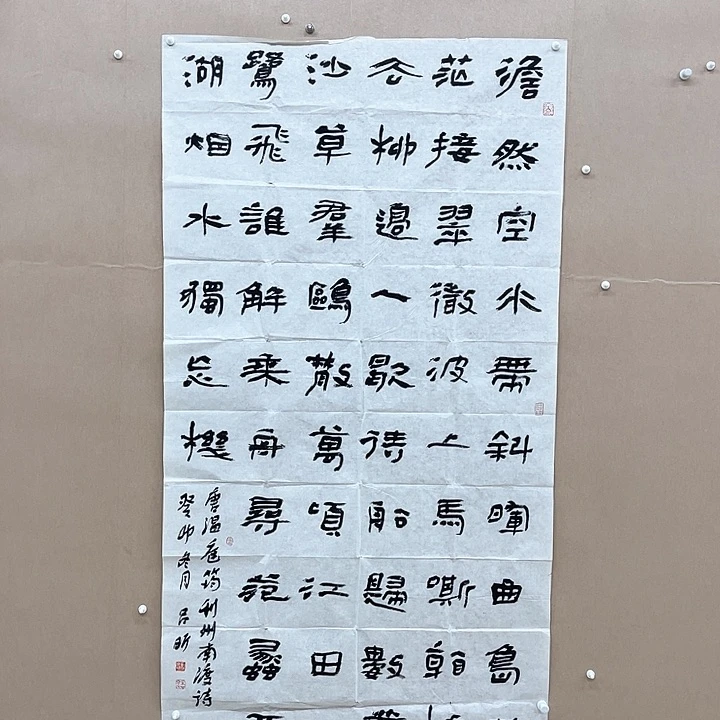 澹然空水帶斜暉曲島
茫接翠微波上馬嘶看
去柳邊人歇待船歸數
沙草羣鷗散萬頃江田
鷺飛誰解乘舟尋范蠡
湖烟水獨忘機
唐温庭筠利州南渡詩
癸卯冬月 呂昕